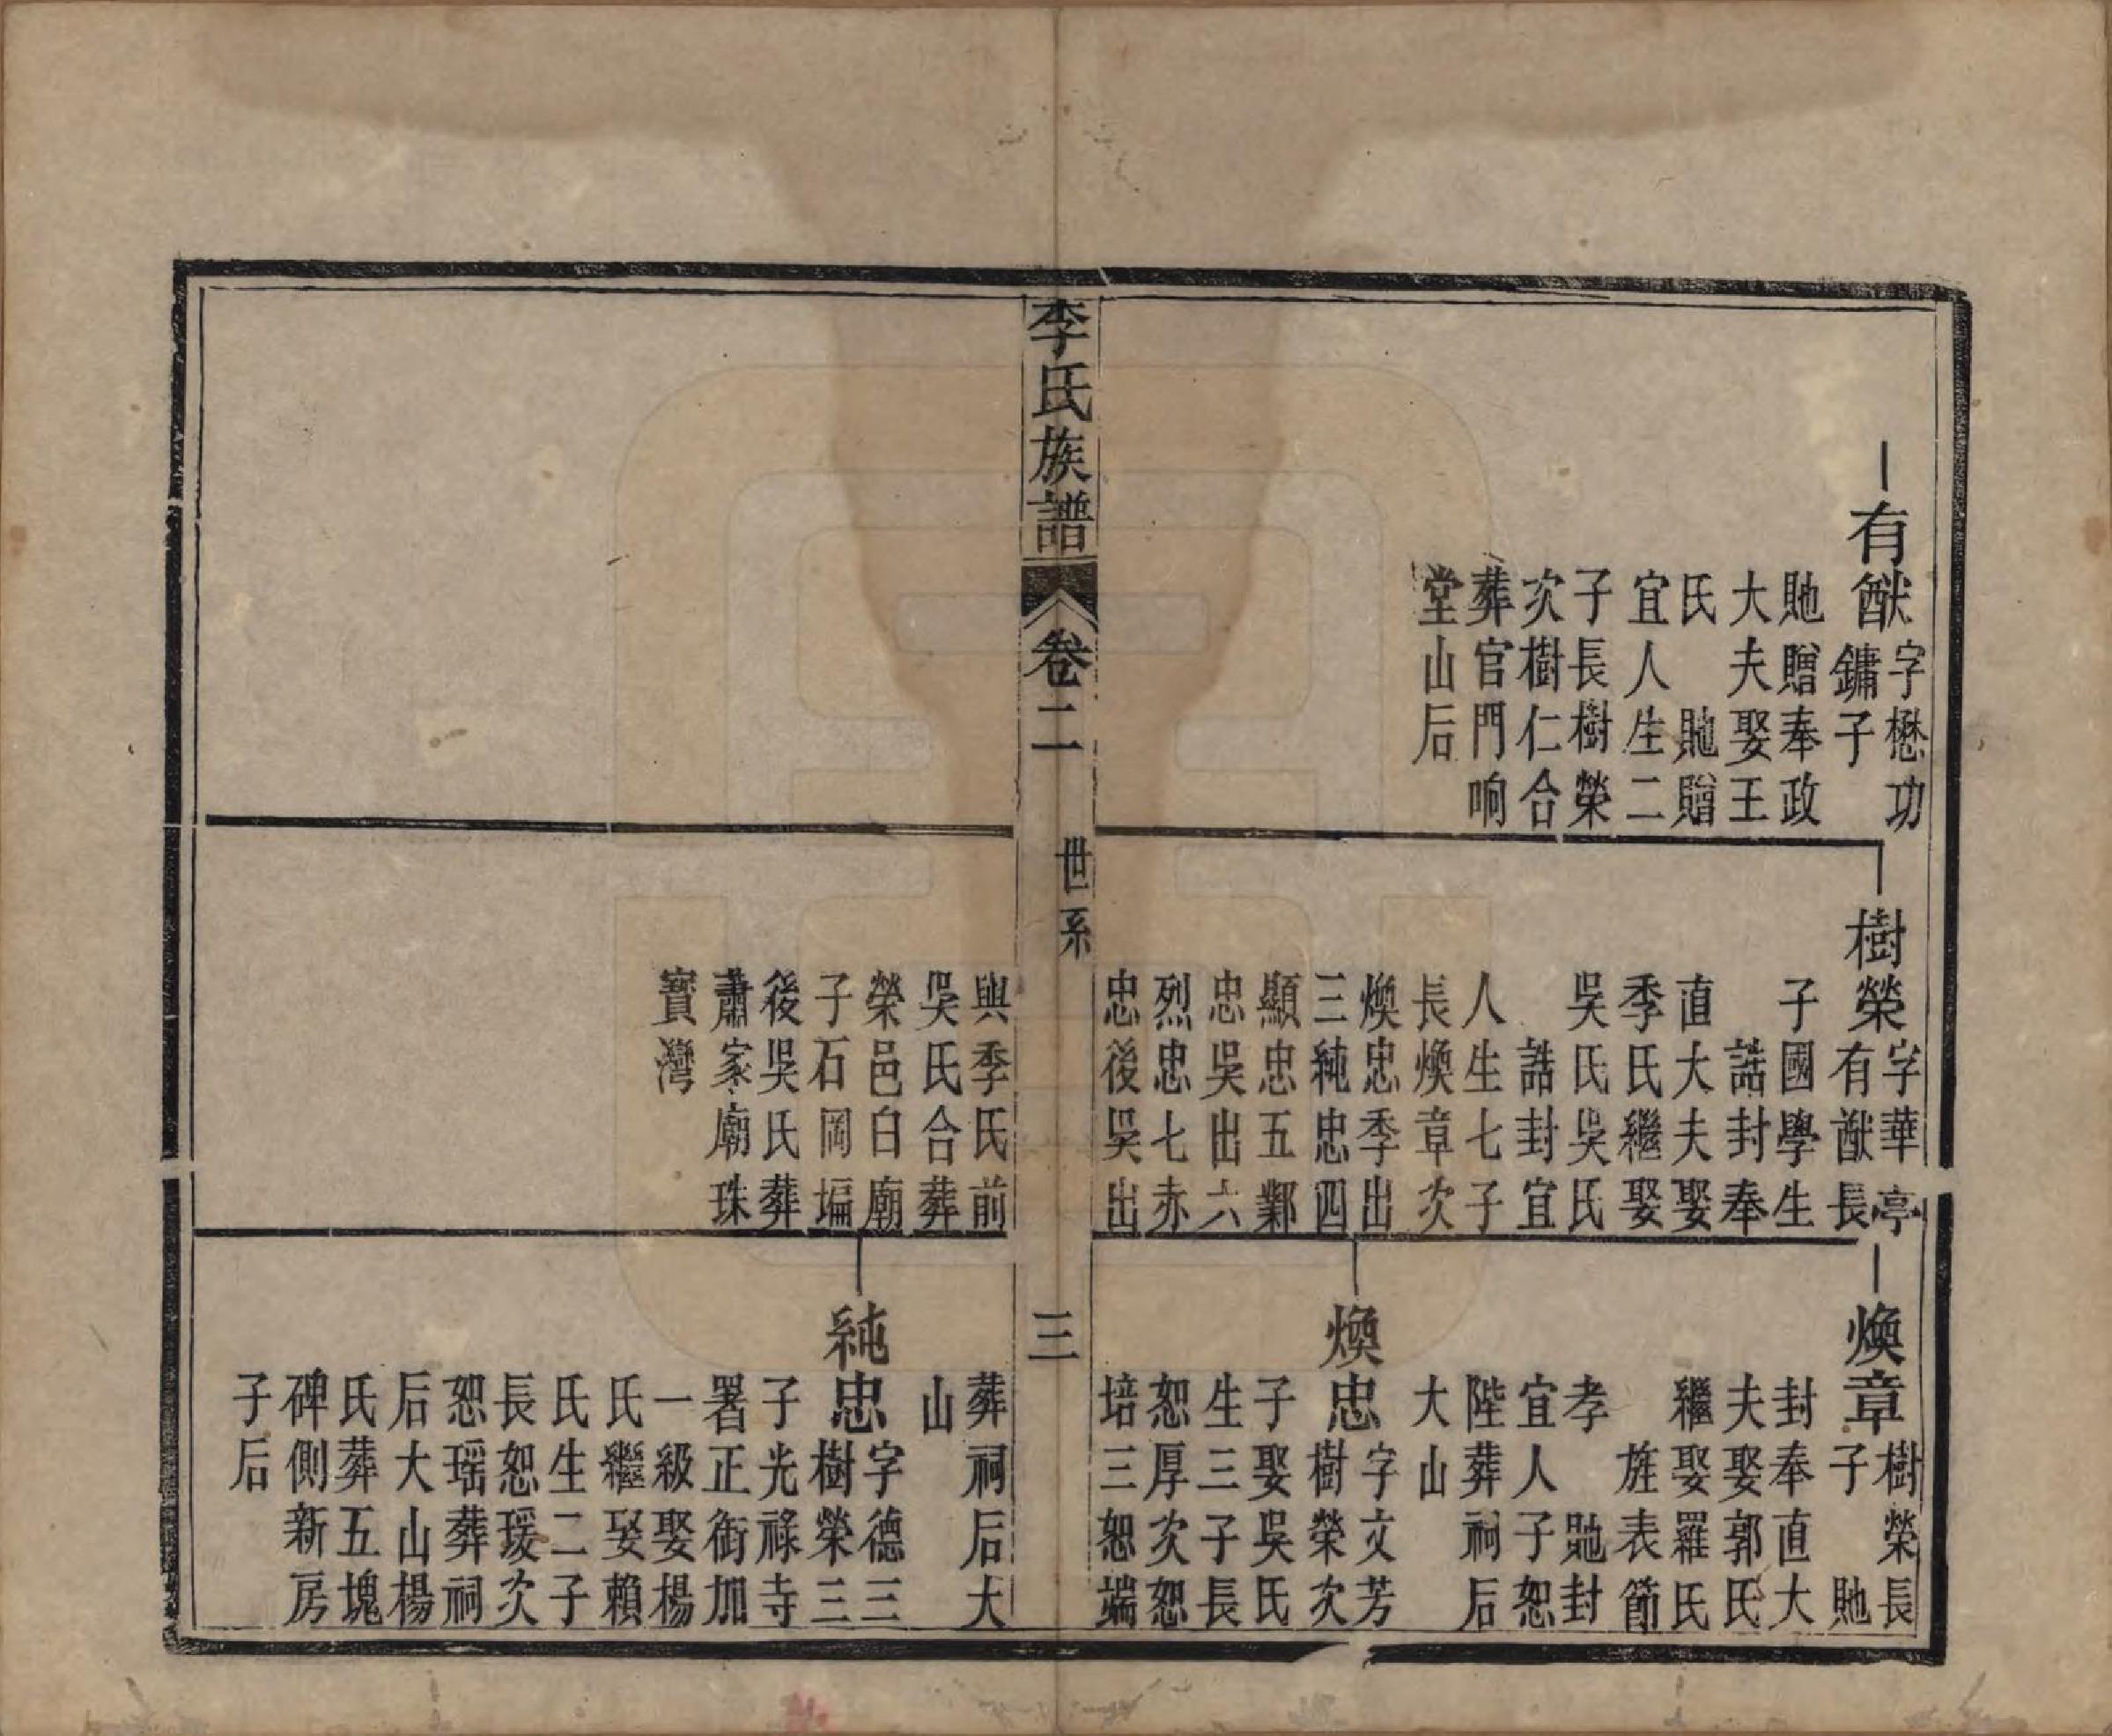 有猷
字懋功
鏞子
貤贈奉政
大夫娶王
氏 貤贈
宜人生二
子長樹榮
次樹仁合
葬官門响
堂山后
樹榮
字華亭
有猷長
子國學生
誥封奉
直大夫娶
季氏繼娶
吳氏吳氏
誥封宜
人生七子
長煥章次
煥忠季出
三純忠四
顯忠五鄴
忠吳出六
烈忠七赤
忠後吳出
煥章
樹榮長
子 貤
封奉直大
夫娶郭氏
繼娶羅氏
旌表節
孝 貤封
宜人子恕
陛葬祠后
大山
煥忠
字文芳
樹榮次
子娶吳氏
生三子長
恕厚次恕
培三恕端
李氏族譜 卷二 世系 三
與季氏前
吳氏合葬
榮邑白廟
子石岡塥
後吳氏葬
蕭家廟珠
寶灣
葬祠后大
山
純忠
字德三
樹榮三
子光祿寺
署正銜加
一級娶楊
氏繼娶賴
氏生二子
長恕瑗次
恕瑤葬祠
后大山楊
氏葬五塊
碑側新房
子后